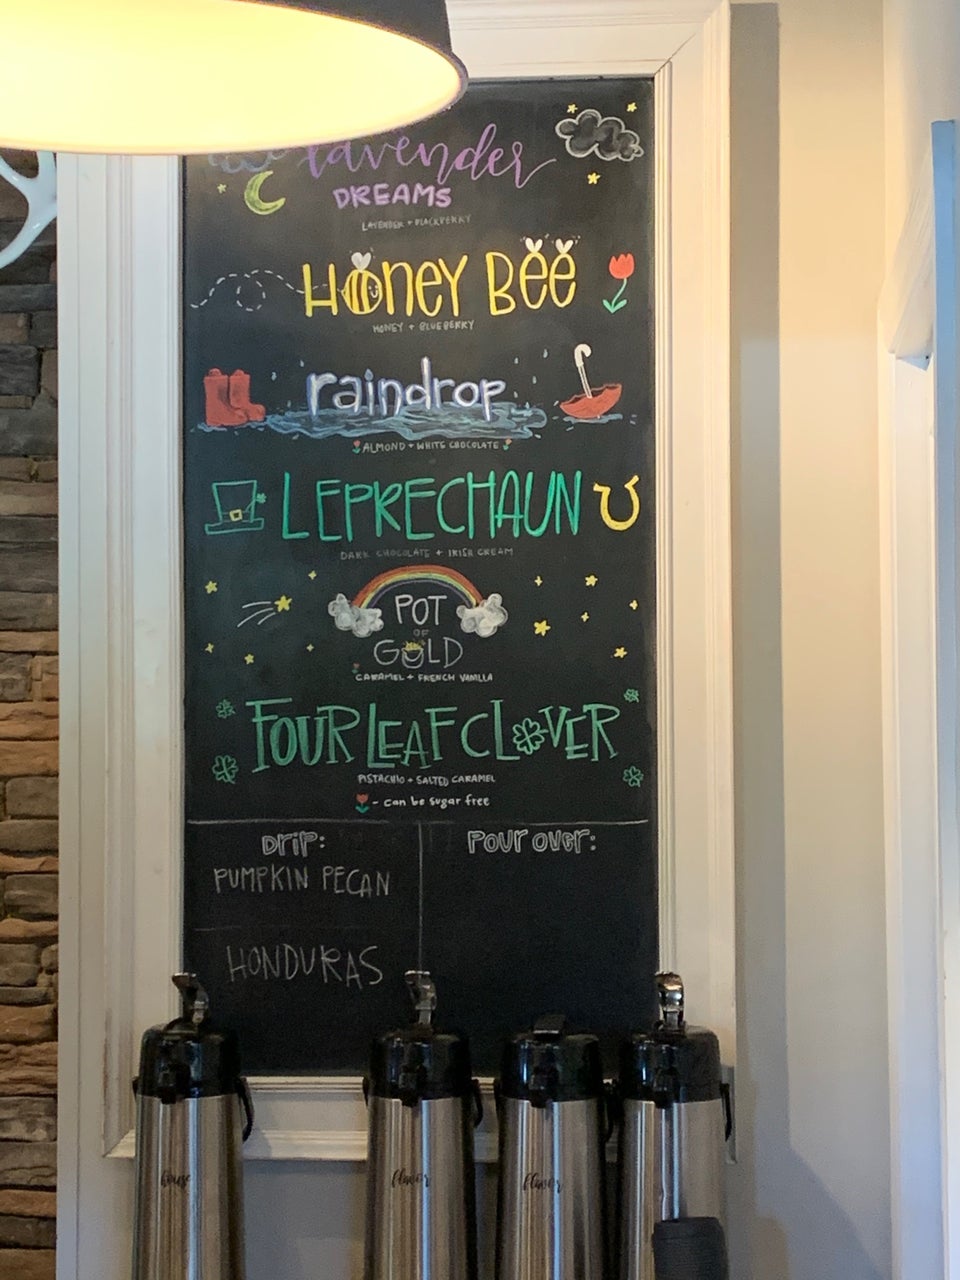 lavender
DREAMS
LAVENDER + BLACKBERRY
HONEY BEE
HONEY + BLUEBERRY
raindrop
ALMOND + WHITE CHOCOLATE
LEPRECHAUN
DARK CHOCOLATE + IRISH CREAM
POT
OF
GOLD
CARAMEL + FRENCH VANILLA
FOUR LEAF CLOVER
PISTACHIO + SALTED CARAMEL
- can be sugar free
Drip:
PUMPKIN PECAN
HONDURAS
Pour over:
house
flavor
flavor